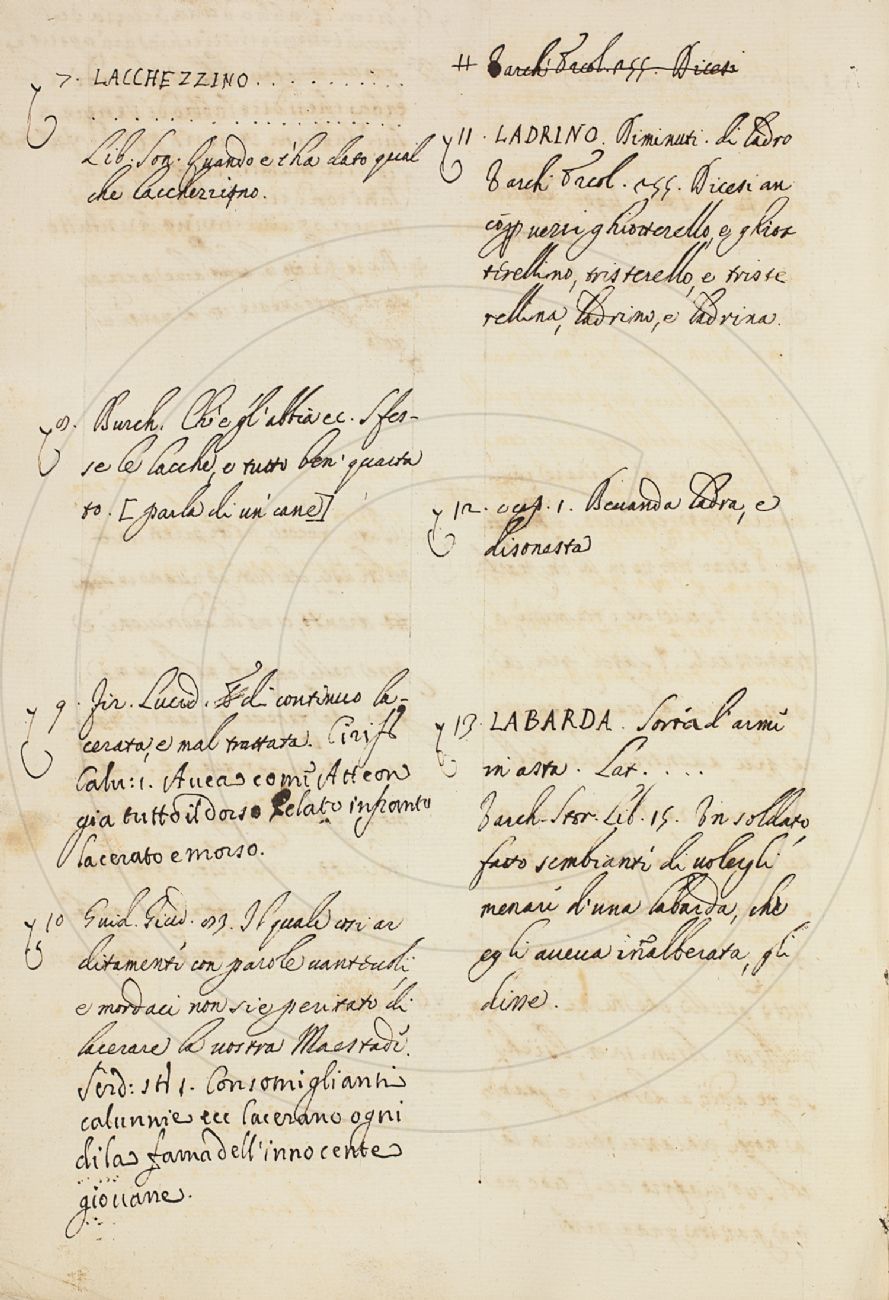 7. LACCHEZZINO . . . . . . . . . .
. . . . . . . . . . . . . . . . . . . .
Lib. Son. Quando e t'ha dato qual
che lacchezzino.
8. Burch. Ch'egl'abbia ec. Sfes-
se le lacche, e tutto ben' quarta
to. [parla di un' cane]
9. Fir. Lucid. di continuo la-
cerata, e mal trattata. Ciriff.
Calu: 1. Auea come Atteon
gia tutto il dorso Pelato infranto
lacerato e morso.
10 Guid. Giud. Il quale così ar
ditamente con parole uantevoli,
e mordaci non si e peritato di
lacerare la vostra Maestade.
Serd: 1. Con somiglianti
calunnie ecc lacerano ogni
di la fama dell'innocente
giouane.
# Varch. Ercol. 255. Dicesi
11. LADRINO. Diminuti. di ladro
Varch. Ercol. 255. Dicesi an
cora uersi ghiotterello, e ghiot
terellino, tristerello, e triste
rellina, ladrino, e ladrina.
12. cap. 1. Beuanda ladra, e
disonesta
13. LABARDA. Sorta d'arme
in asta. Lat. . . . .
Varch. Stor. Lib. 15. Un soldato,
fatto sembiante di uolergli
menare d'una labarda, che
egli aueua innalberata, gli
disse.